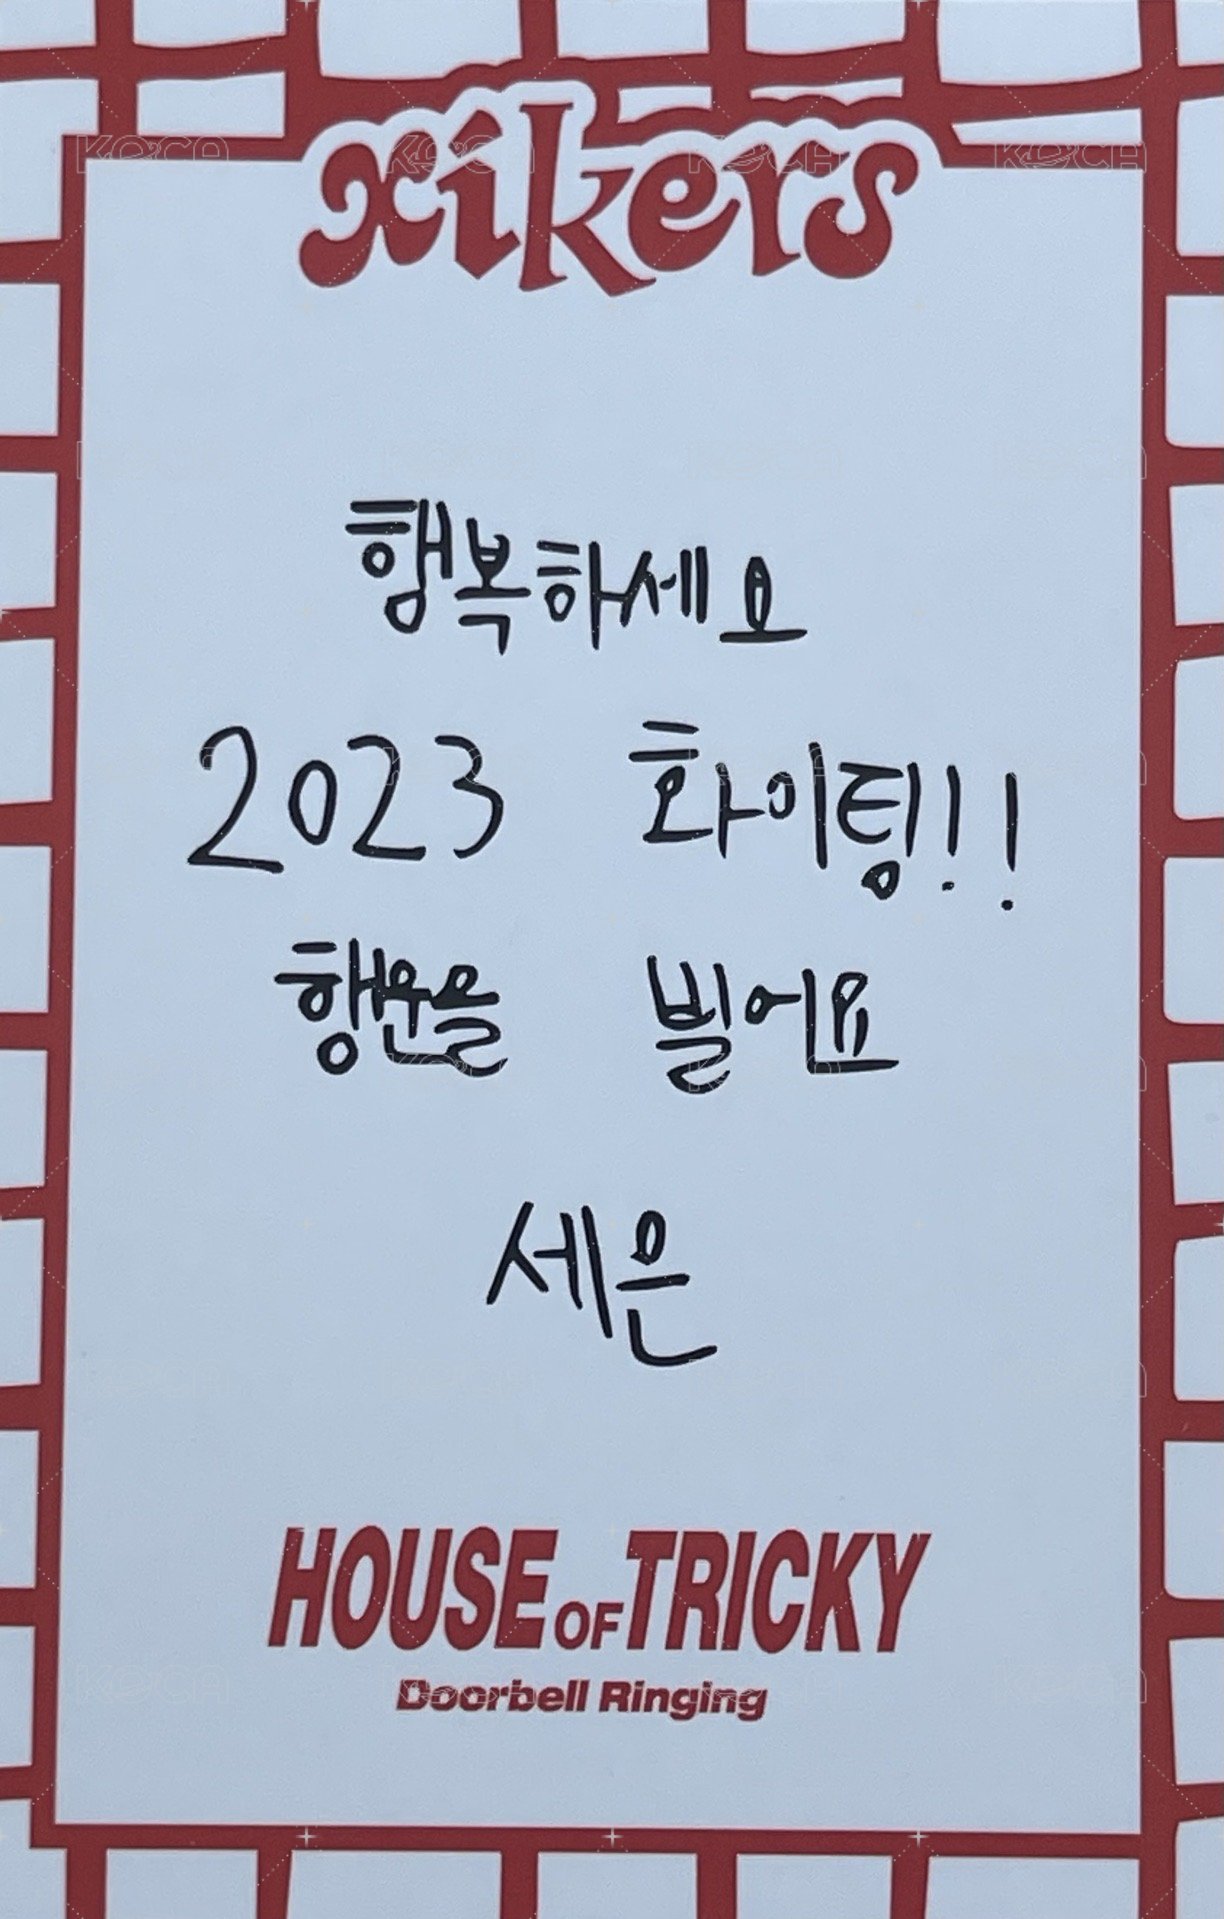 xikers
행복하세요
2023 화이팅!!
행운을 빌어요
세은
HOUSE OF TRICKY
Doorbell Ringing